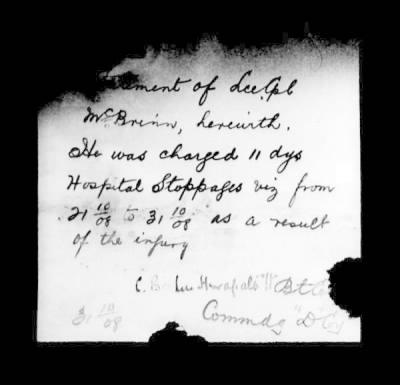 ment of Lce Cpl
McBrinn, herewith.
He was charged 11 dys
Hospital Stoppages viz from
21 10/08 to 31 10/08 as a result
of the injury
C.
31 10/08 Commdg "D" Coy